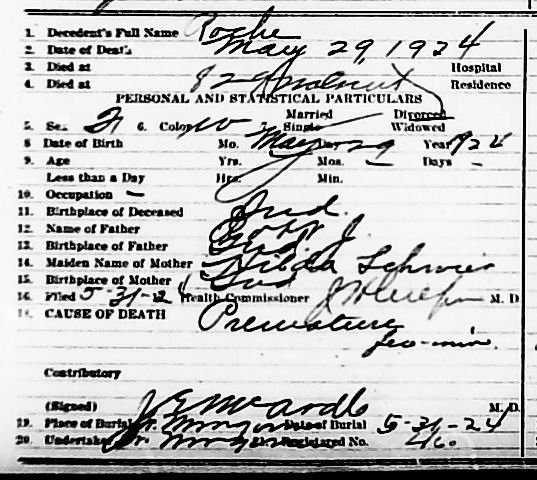 1. Decedent's Full Name Roche
2. Date of Death May 29, 1924
3. Died at Hospital
4. Died at 829 Walnut Residence
PERSONAL AND STATISTICAL PARTICULARS
Married Divorced
5. Sex 6. Color W 7. Single Widowed
8 Date of Birth Mo. May Day 29 Year 1924
9. Age Yrs. Mos. – Days –
Less than a Day Hrs. Min.
10. Occupation –
11. Birthplace of Deceased Ind.
12. Name of Father Robt J.
13. Birthplace of Father Ind
14. Maiden Name of Mother Hilda
15. Birthplace of Mother Ind
16. Filed 5-31-2 Health Commissioner M. D
CAUSE OF DEATH Premature
few min.
Contributory
(Signed) M. D.
19. Place of Burial Date of Burial 5-31-24
20. Undertaker Registered No.